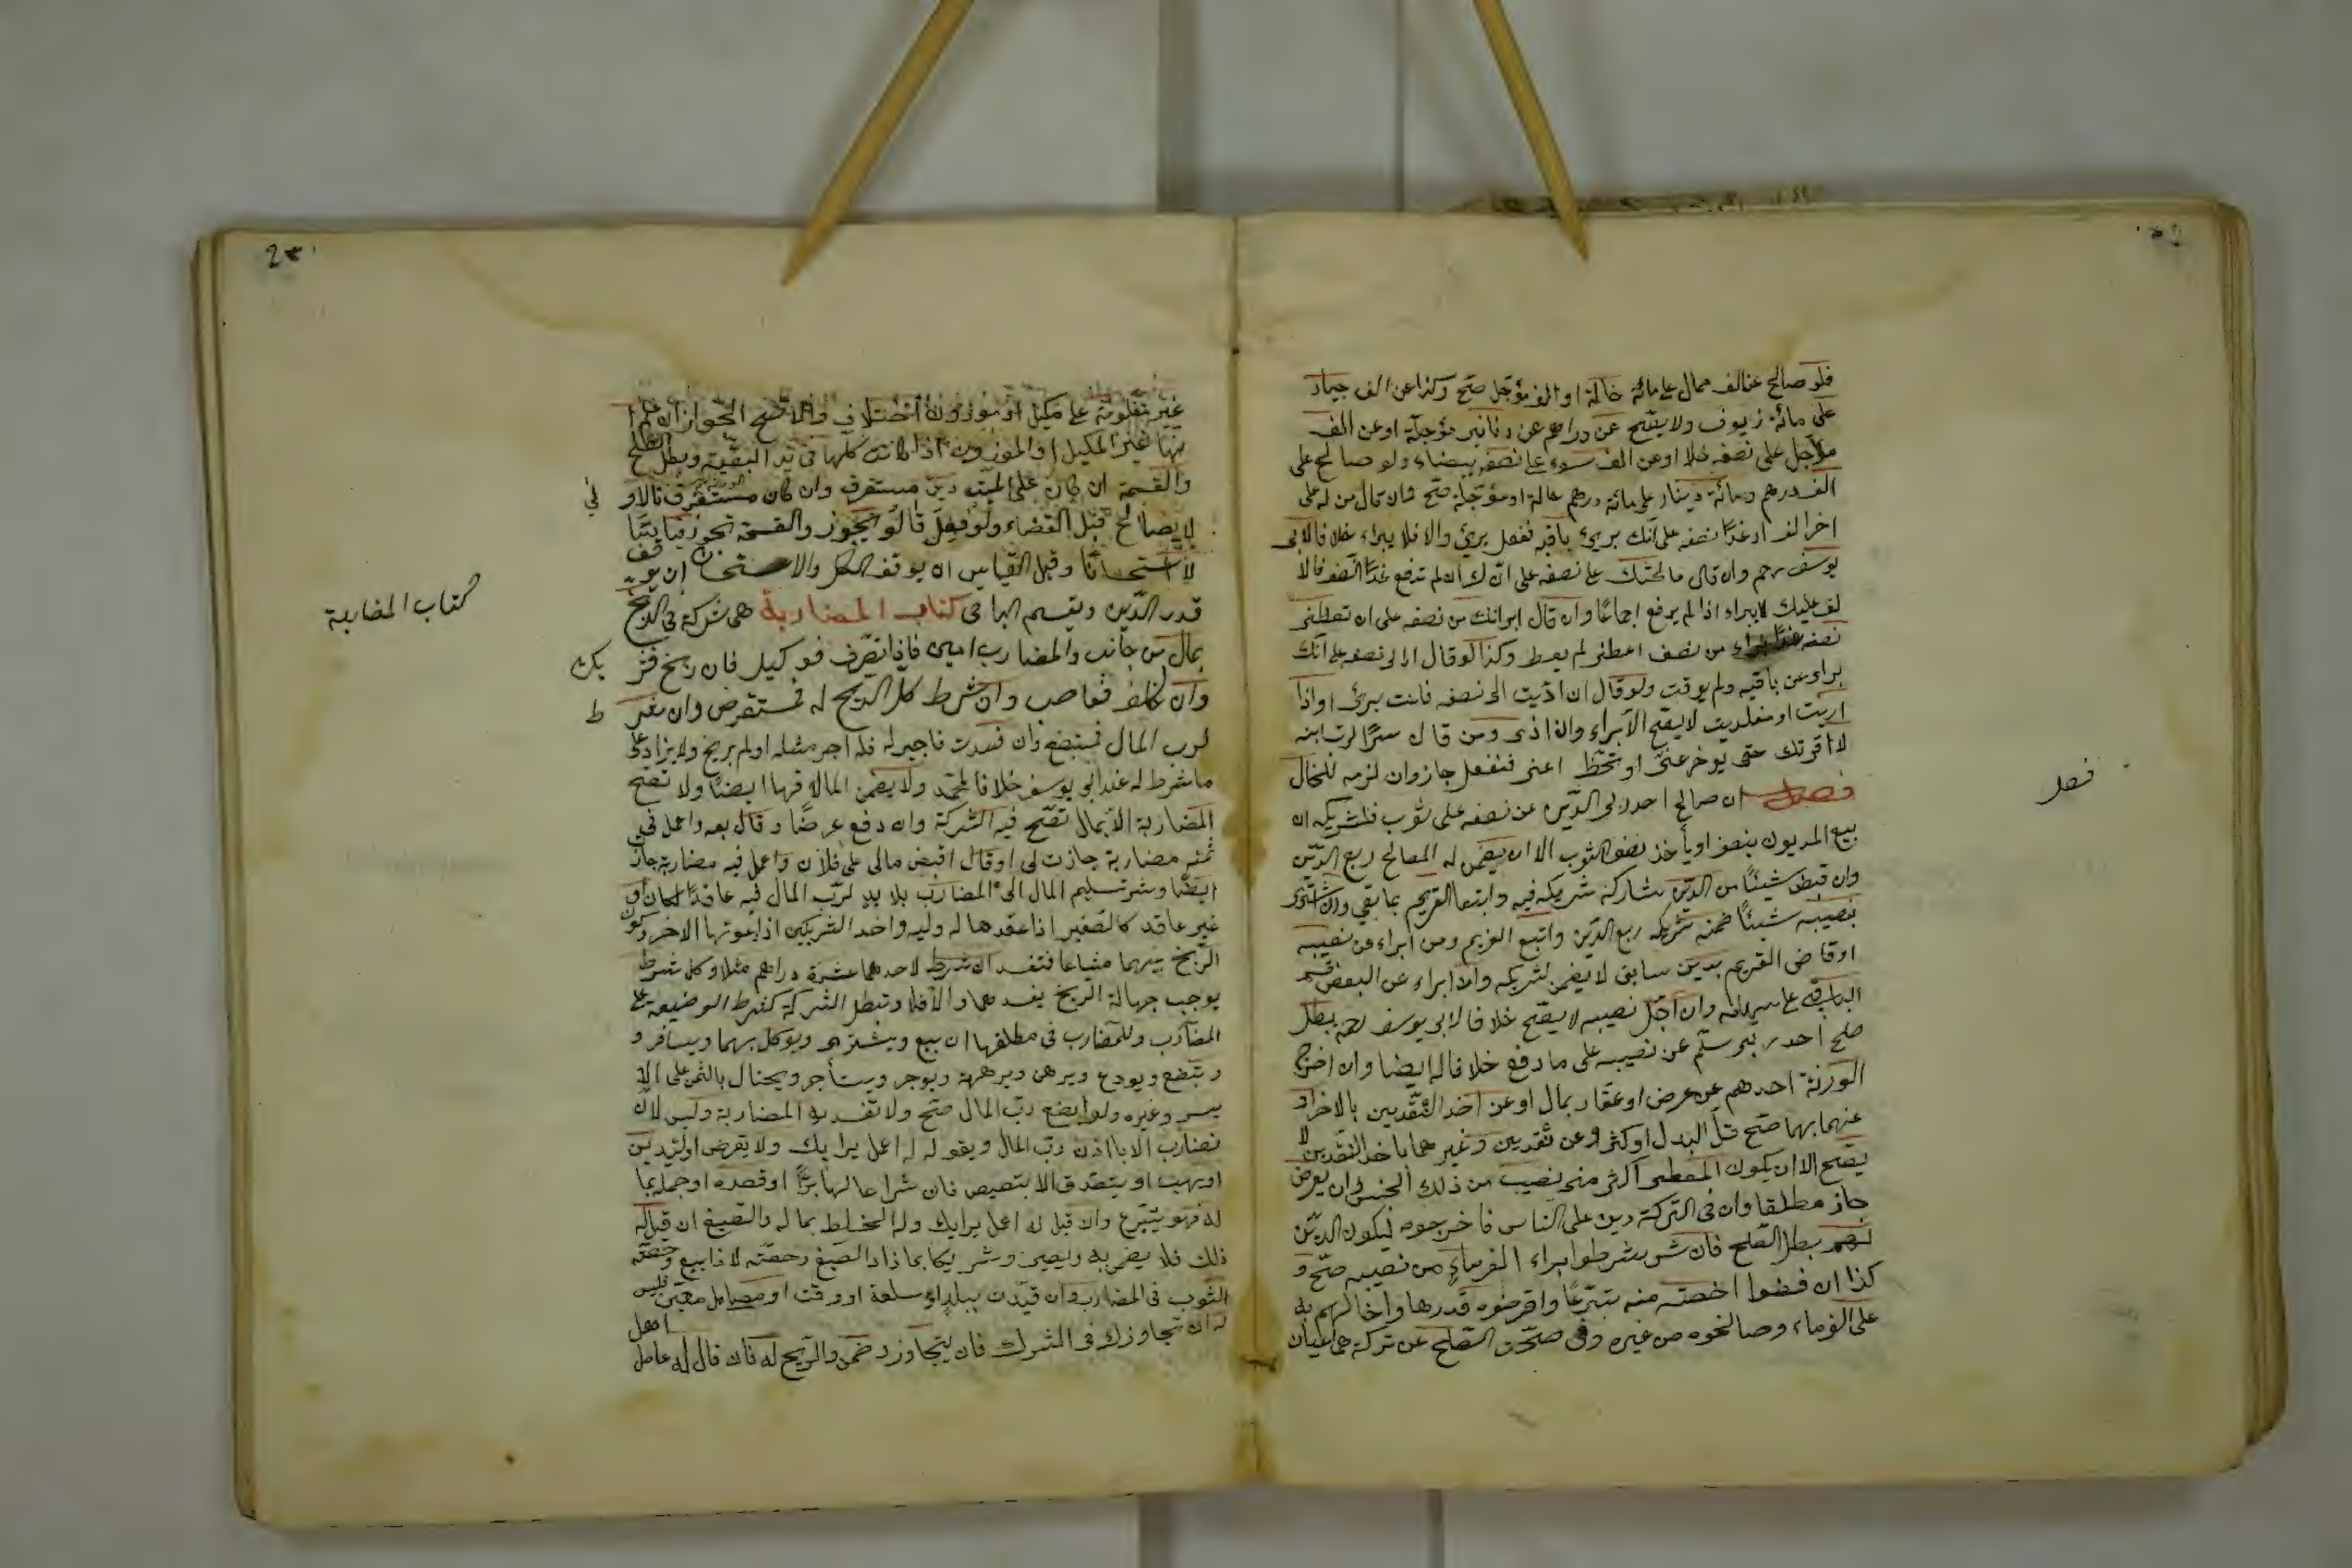 فلو صالح عن الف حال على مائة حالة او الف مؤجل صح وكذا عن الف جياد
على مائة زيوف ولا يصح عن دراهم عن دنانير مؤجلة او عن الف
مؤجل على نصفه حلا او عن الف سود على نصفه بيضاء ولو صالح على
الف درهم ومائة دينار على مائة درهم حالة او مؤجلة صح شان قال من له على
اخر الف اد غدا نصفه على انك برئ باقيه ففعل برئ والا فلا يبراء خلافا لابى
يوسف رحم وان قال صالحتك على نصفه على انك ان لم تدفع غدا النصف فالا
لف عليك لايبراء اذا لم يدفع اجماعا وان قال ابراتك من نصفه على ان تعطنى
نصفه غدا براء من نصف اعطى لم يعط وكذا لو قال اد الى نصفه على انك
براء عن باقيه ولم يوقت ولو قال ان اديت الى نصفه فانت برئ او اذا
اديت او متى اديت لا يصح الابراء وان اذى ومن قال سرا لرب ابنه
لا اقر لك حتى توخر عنى او تحط اعنى ففعل جاز وان لزمه للحال
فصل ان صالح احد ربى الدين عن نصفه على ثوب فلشريكه ان
يبيع المديون بنصفه او يأخذ نصف الثوب الا ان يضمن له المصالح ربع الدين
وان قبض شيئا من الدين شاركه شريكه فيه واتبعا الغريم بما بقي وان اشترى
بنصيبه شيئا ضمنه شريكه ربع الدين واتبع الغريم ومن ابراء عن نصيبه
او قاض الغريم بدين سابق لا يضمن لشريكه وان ابراء عن البعض قسم
الباقى على سهامه وان اجل نصيبه لا يصح خلافا لابى يوسف رحه بطل
صلح احد ربى سلم عن نصيبه على ما دفع خلافا له ايضا وان اخرج
الورثة احدهم عن عرض او عقار بمال او عن احد النقدين بالاخر او
عنهما بهما صح قل البدل او كثر وعن نقدين وغيرهما باحد النقدين لا
يصح الا ان يكون المعطى اكثر من نصيب من ذلك الجنس وان بعرض
جاز مطلقا وان فى التركة دين على الناس فاخرجوه ليكون الدين
لهم بطل الصلح فان شرطوا براء الغرماء من نصيبه صح و
كذا ان قضوا احصته منه تبرعا واقرضوه قدرها واحالهم به
على الغرماء وصالحوه من غيره وفى صحة الصلح عن تركة هى اعيان
فصل
غير معلومة على مكيل او موزون اختلاف والاصح الجواز ان علم ا
نها غير المكيل او الموزون اذا كانت كلها فى يد البقية وبطل الصلح
والقسمة ان كان على الميت دين مستغرق وان كان مستغرق فالاو لى
لا يصالح قبل القضاء ولو فعل قالو يجوز والقسمة تجوز قياسا
لا استحسانا وقبل القياس ان يوقف الكل والاستحسان ان يوقف
قدر الدين ويقسم الباقى كتاب المضاربة هى شركة فى الربح
بمال من جانب والمضارب امين فاذا تصرف فوكيل فان ربح فشريك
وان خالف فغاصب وان شرط كل الربح له فمستقرض وان شرط
لرب المال فمستبضع وان فسدت فاجير له فله اجر مثله او لم يربح ولا يزاد على
ما شرط له عند ابى يوسف خلافا لمحمد ولا يضمن المال فيها ايضا ولا تصح
المضاربة الا بمال تصح فيه الشركة وان دفع عرضا وقال بعه واعمل فى
ثمنه مضاربة جازت لى او قال اقبض مالى على فلان واعمل فيه مضاربة جاز
ايضا وشرط تسليم المال الى المضارب بلا يد لرب المال فيه عاقدا كان او
غير عاقد كالصغير اذا عقدها له وليه واحد الشريكين اذا عقدها الاخر وكون
الربح بينهما مشاعا فتفسد ان شرط لاحدهما عشرة دراهم مثلا وكل شرط
يوجب جهالة الربح يفسدها والا فلا وتبطل الشركة كشرط الوضيعة على
المضارب وللمضارب فى مطلقها ان يبيع ويشترى ويوكل بهما ويسافر و
يبضع ويودع ويرهن ويرتهن ويوجر ويستأجر ويحتال بالثمن على الا
يسر وغيره ولو ابضع رب المال صح ولا تفسد به المضاربة وليس له ان
يضارب الا باذن رب المال وبقوله له اعمل برايك ولا يقرض او يستدين
او يهب او يتصدق الا بتنصيص فان شرا بمالها بزا او قصره او حمله بما
له فهو متبرع وان قيل له اعمل برايك وله الخلط بماله والصبغ ان قيل له
ذلك فلا يضمن به ويصير شريكا بما زاد الصبغ وحصته لا اذا بيع وحصة
الثوب فى المضاربة وان قيدت ببلد او سلعة او وقت او معامل معين فليس
له ان تجاوز كذا فى الشرك فان تجاوز ضمن والربح له فان قال له عامل اهل
كتاب المضاربة